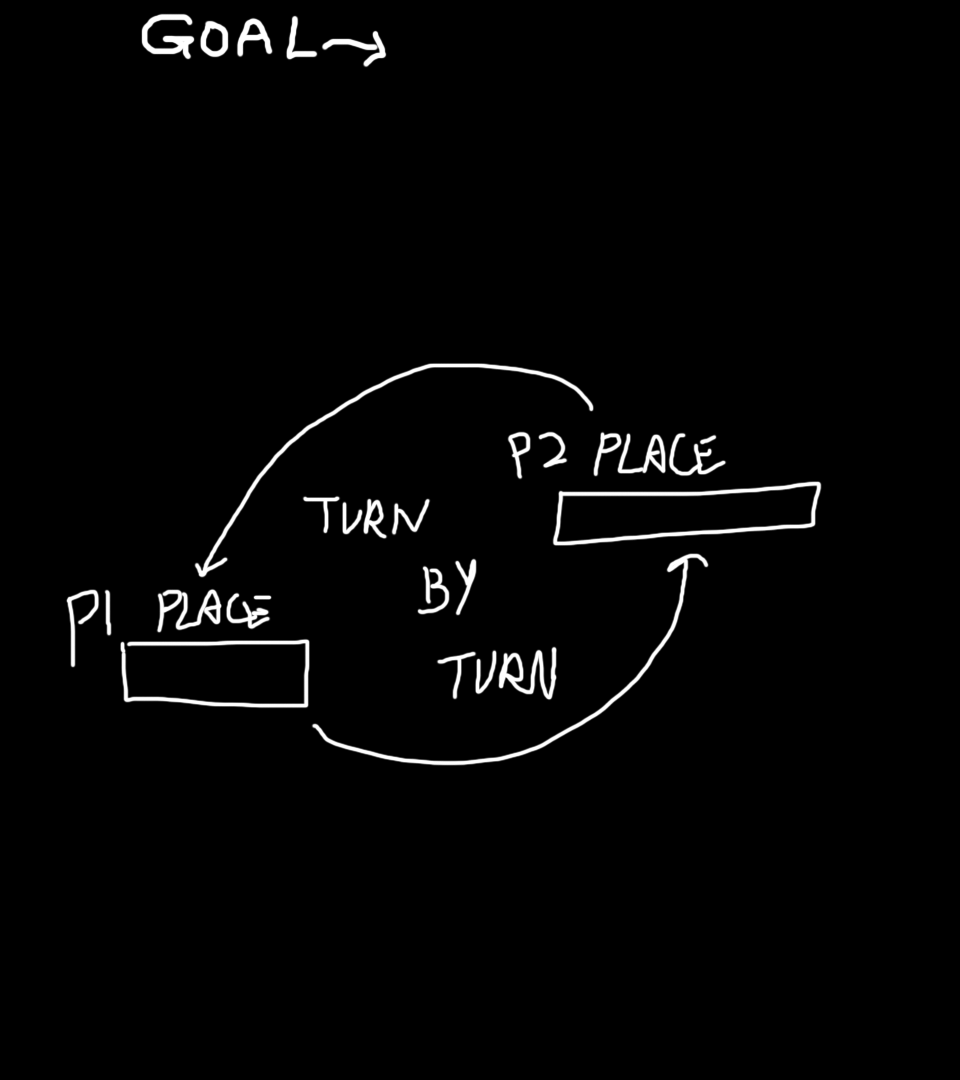 GOAL→
P2 PLACE
TURN
BY
TURN
P1 PLACE